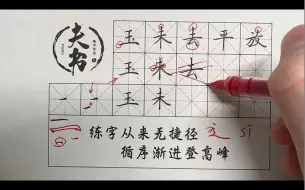 夫书
玉未去平放
玉未去
玉未
练字从来无捷径
循序渐进登高峰